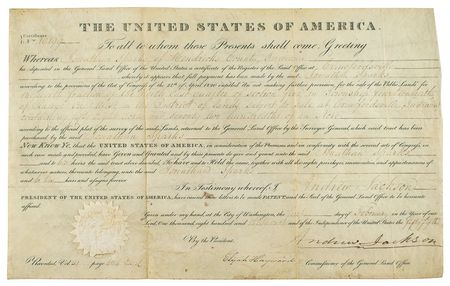 THE UNITED STATES OF AMERICA.
Certificate
To all to whom these Presents shall come, Greeting
Whereas
County
has deposited in the General Land Office of the United States, a Certificate of the Register of the Land Office at Crawfordsville
whereby it appears that full payment has been made by the said Jonathan Sparks
according to the provisions of the Act of Congress of the 24th of April 1820 entitled An act making further provision for the sale of the Public Lands for
of Section
District of Lands to Sale at Crawfordsville Indiana
according to the official plat of the survey of the said Lands, returned to the General Land Office by the Surveyor General, which said tract has been
purchased by the said Sparks
Now Know Ye, that the UNITED STATES OF AMERICA, in consideration of the Premises and in conformity with the several acts of Congress, in
such case made and provided, have Given and Granted and by these presents do give and grant unto the said Jonathan
and to his heirs the said tract above described, To have and to Hold the same, together with all the rights, privileges, immunities and appurtenances of
whatsoever nature, thereunto belonging, unto the said Jonathan Sparks
and to his heirs and assigns forever
In Testimony whereof I Andrew Jackson
PRESIDENT OF THE UNITED STATES OF AMERICA, have caused these letters to be made PATENT, and the Seal of the General Land Office to be hereunto
affixed.
Given under my hand at the City of Washington, the day of in the Year of our
Lord one thousand, eight hundred and and of the Independence of the United States the fifty
By the President. Andrew Jackson
Elijah Hayward Commissioner of the General Land Office.
Recorded, Vol page